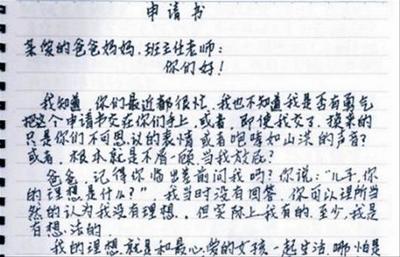 申请书
亲爱的爸爸妈妈,班主任老师:
你们好!
我知道,你们最近都很忙,我也不知道我是否有勇气
把这个申请书交在你们手上,或者,即使我交了,换来的
只是你们不可思议的表情或者咆哮如山洪的声音?
或者,根本就是不屑一顾,当我放屁?
爸爸,记得你临出差前问我吗?你说:“儿子,你
的理想是什么?”,我当时没有回答,你可以理所当
然的认为我没有理想。但实际上我有的,至少,我是
有想法的。
我的理想,就是和最心爱的女孩一起生活,哪怕是